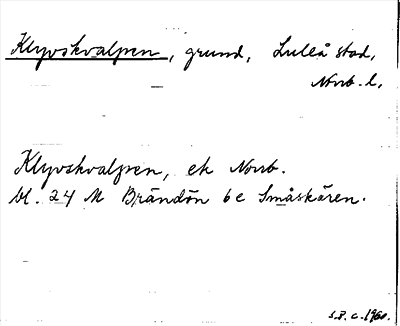 Klyvskvalpen, grund, Luleå stad,
Norrb. l.
Klyvskvalpen, ek Norrb.
bl. 24 M Brändön 6 e Småskären.
S.P. c. 1960.